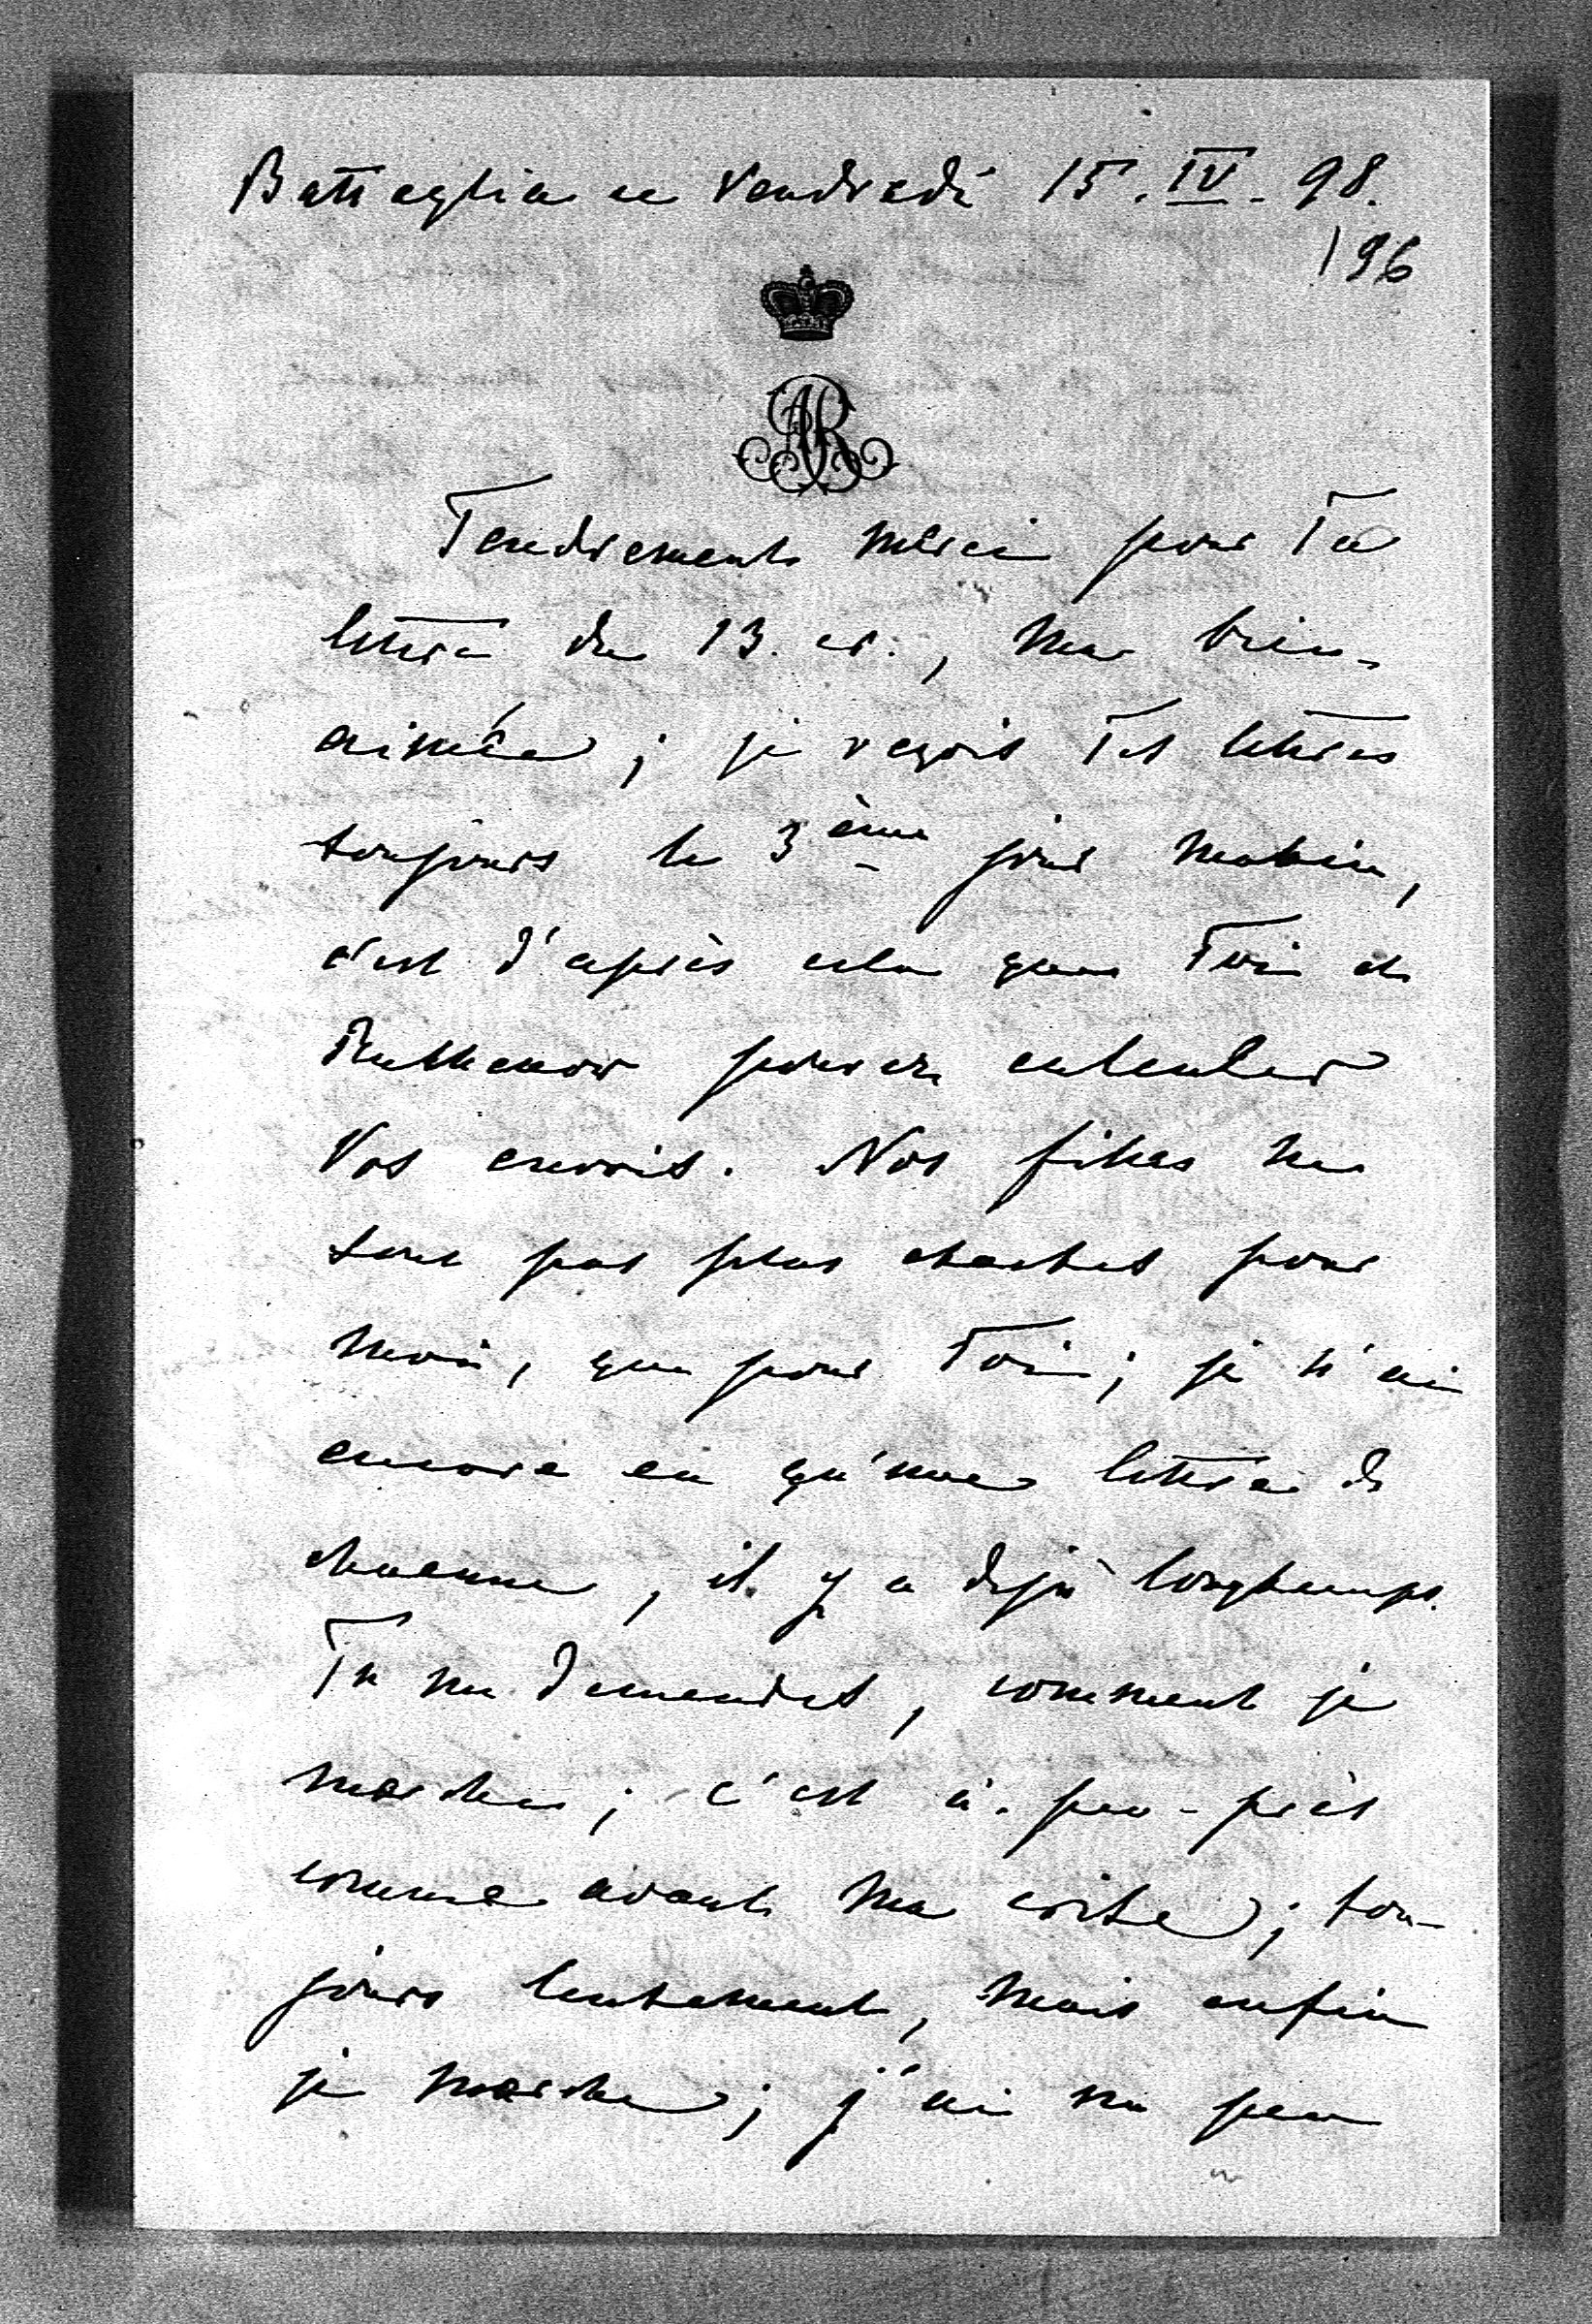 Battaglia ce Vendredi 15. IV. 98.
196
AR
Tendrement merci pour Ta
lettre du 13. cr., ma bien-
aimée; je reçois Tes lettres
toujours le 3ème jour matin,
c'est d'après cela que Toi et
pouvez calculer
Vos envois. Nos filles ne
sont pas plus exactes pour
moi, que pour Toi; je n'ai
encore eu qu'une lettre de
chacune, il y a déjà longtemps.
Tu me demandes, comment je
marche; c'est à-peu-près
comme avant ma crise; tou-
jours lentement, mais enfin
je marche; j'ai un peu